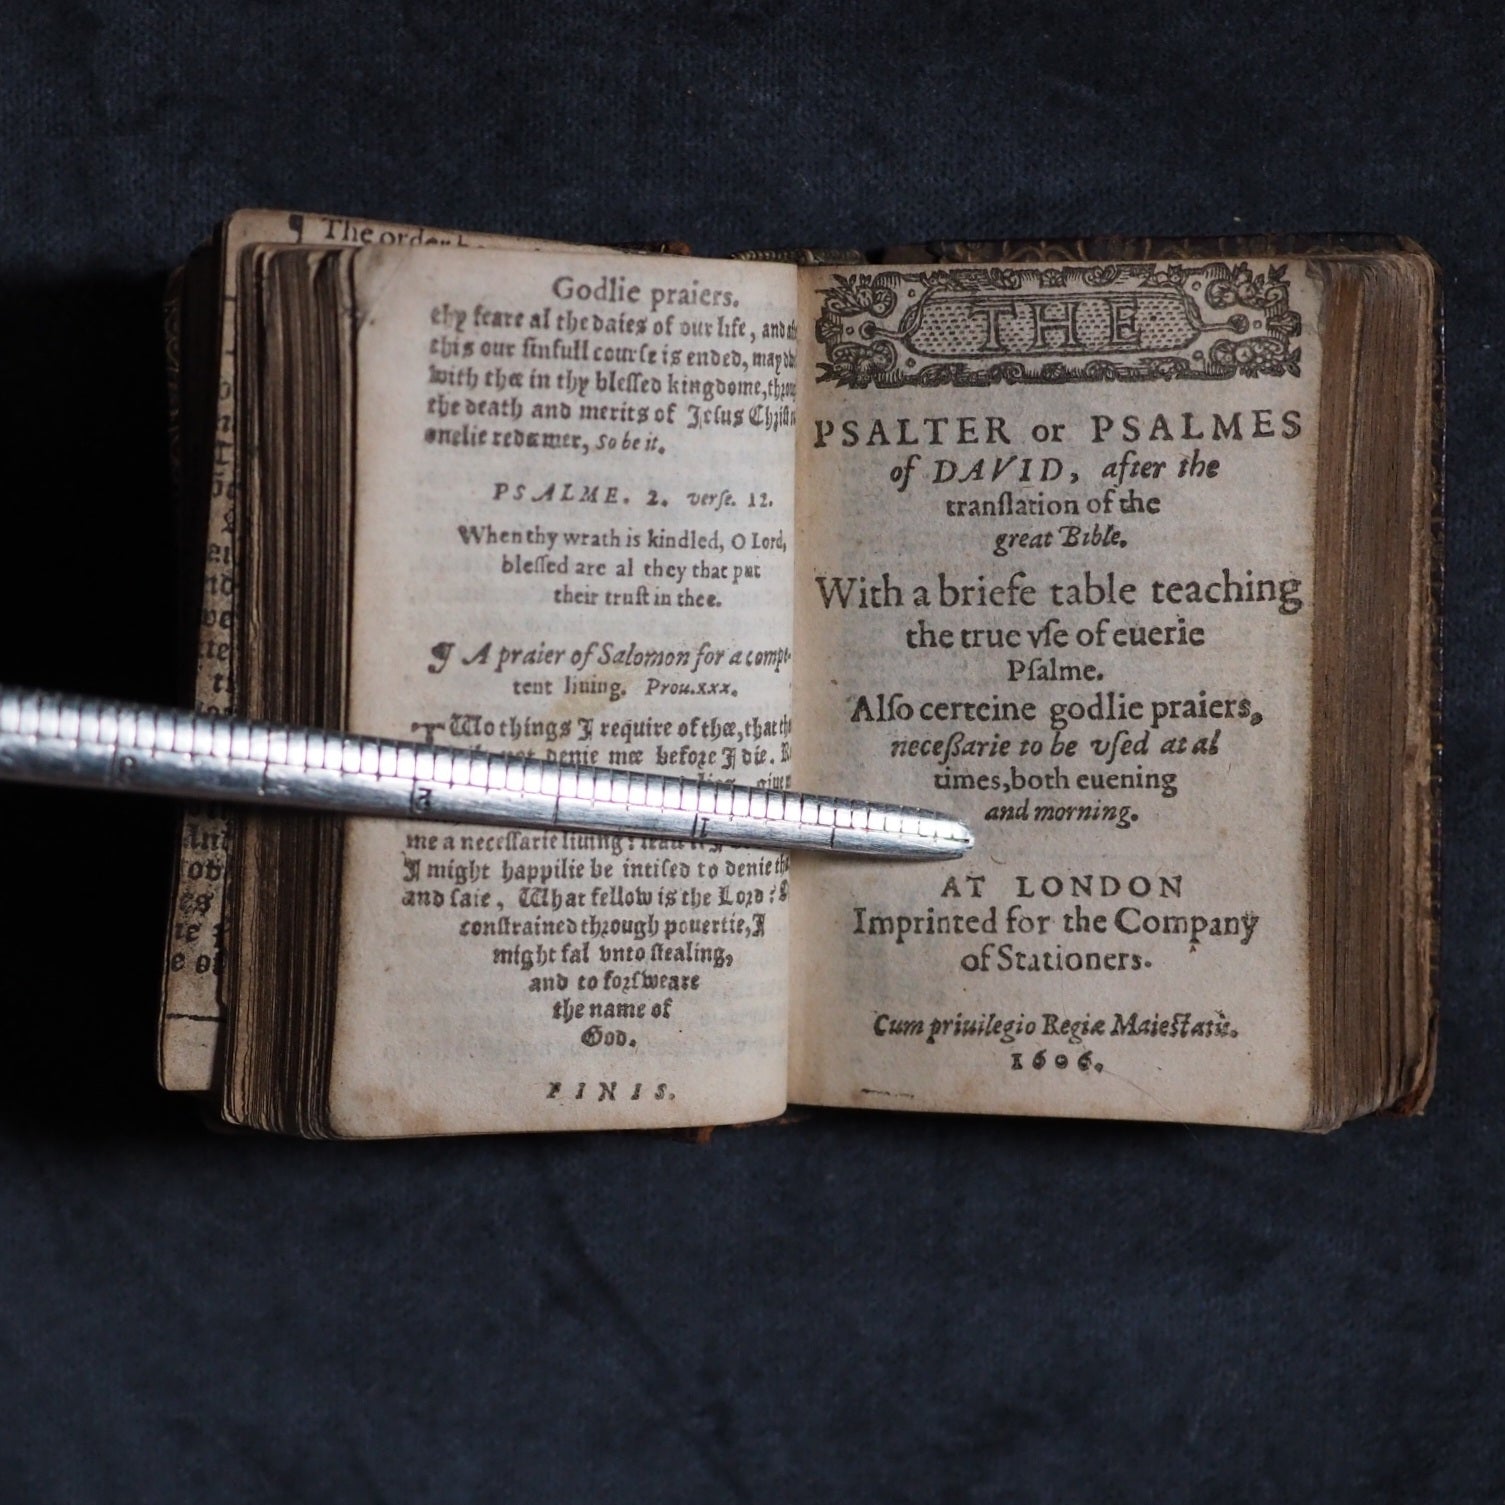 ¶ The order
Godlie praiers.
thy feare al the daies of our life, and
this our sinfull course is ended, may
with thee in thy blessed kingdome,
the death and merits of Jesus
onelie redeemer, So be it.
PSALME. 2. verse. 12.
When thy wrath is kindled, O Lord,
blessed are al they that put
their trust in thee.
¶ A praier of Salomon for a compe-
tent liuing. Prou.xxx.
TWo things I require of thee, that
not denie mee before I die.
me a necessarie liuing:
I might happilie be intised to denie
and saie, What fellow is the Lord?
constrained through pouertie, I
might fal vnto stealing,
and to forsweare
the name of
God.
FINIS.
THE
PSALTER or PSALMES
of DAVID, after the
translation of the
great Bible.
With a briefe table teaching
the true vse of euerie
Psalme.
Also certeine godlie praiers,
necessarie to be vsed at al
times, both euening
and morning.
AT LONDON
Imprinted for the Company
of Stationers.
Cum priuilegio Regiæ Maiestatis.
1606.